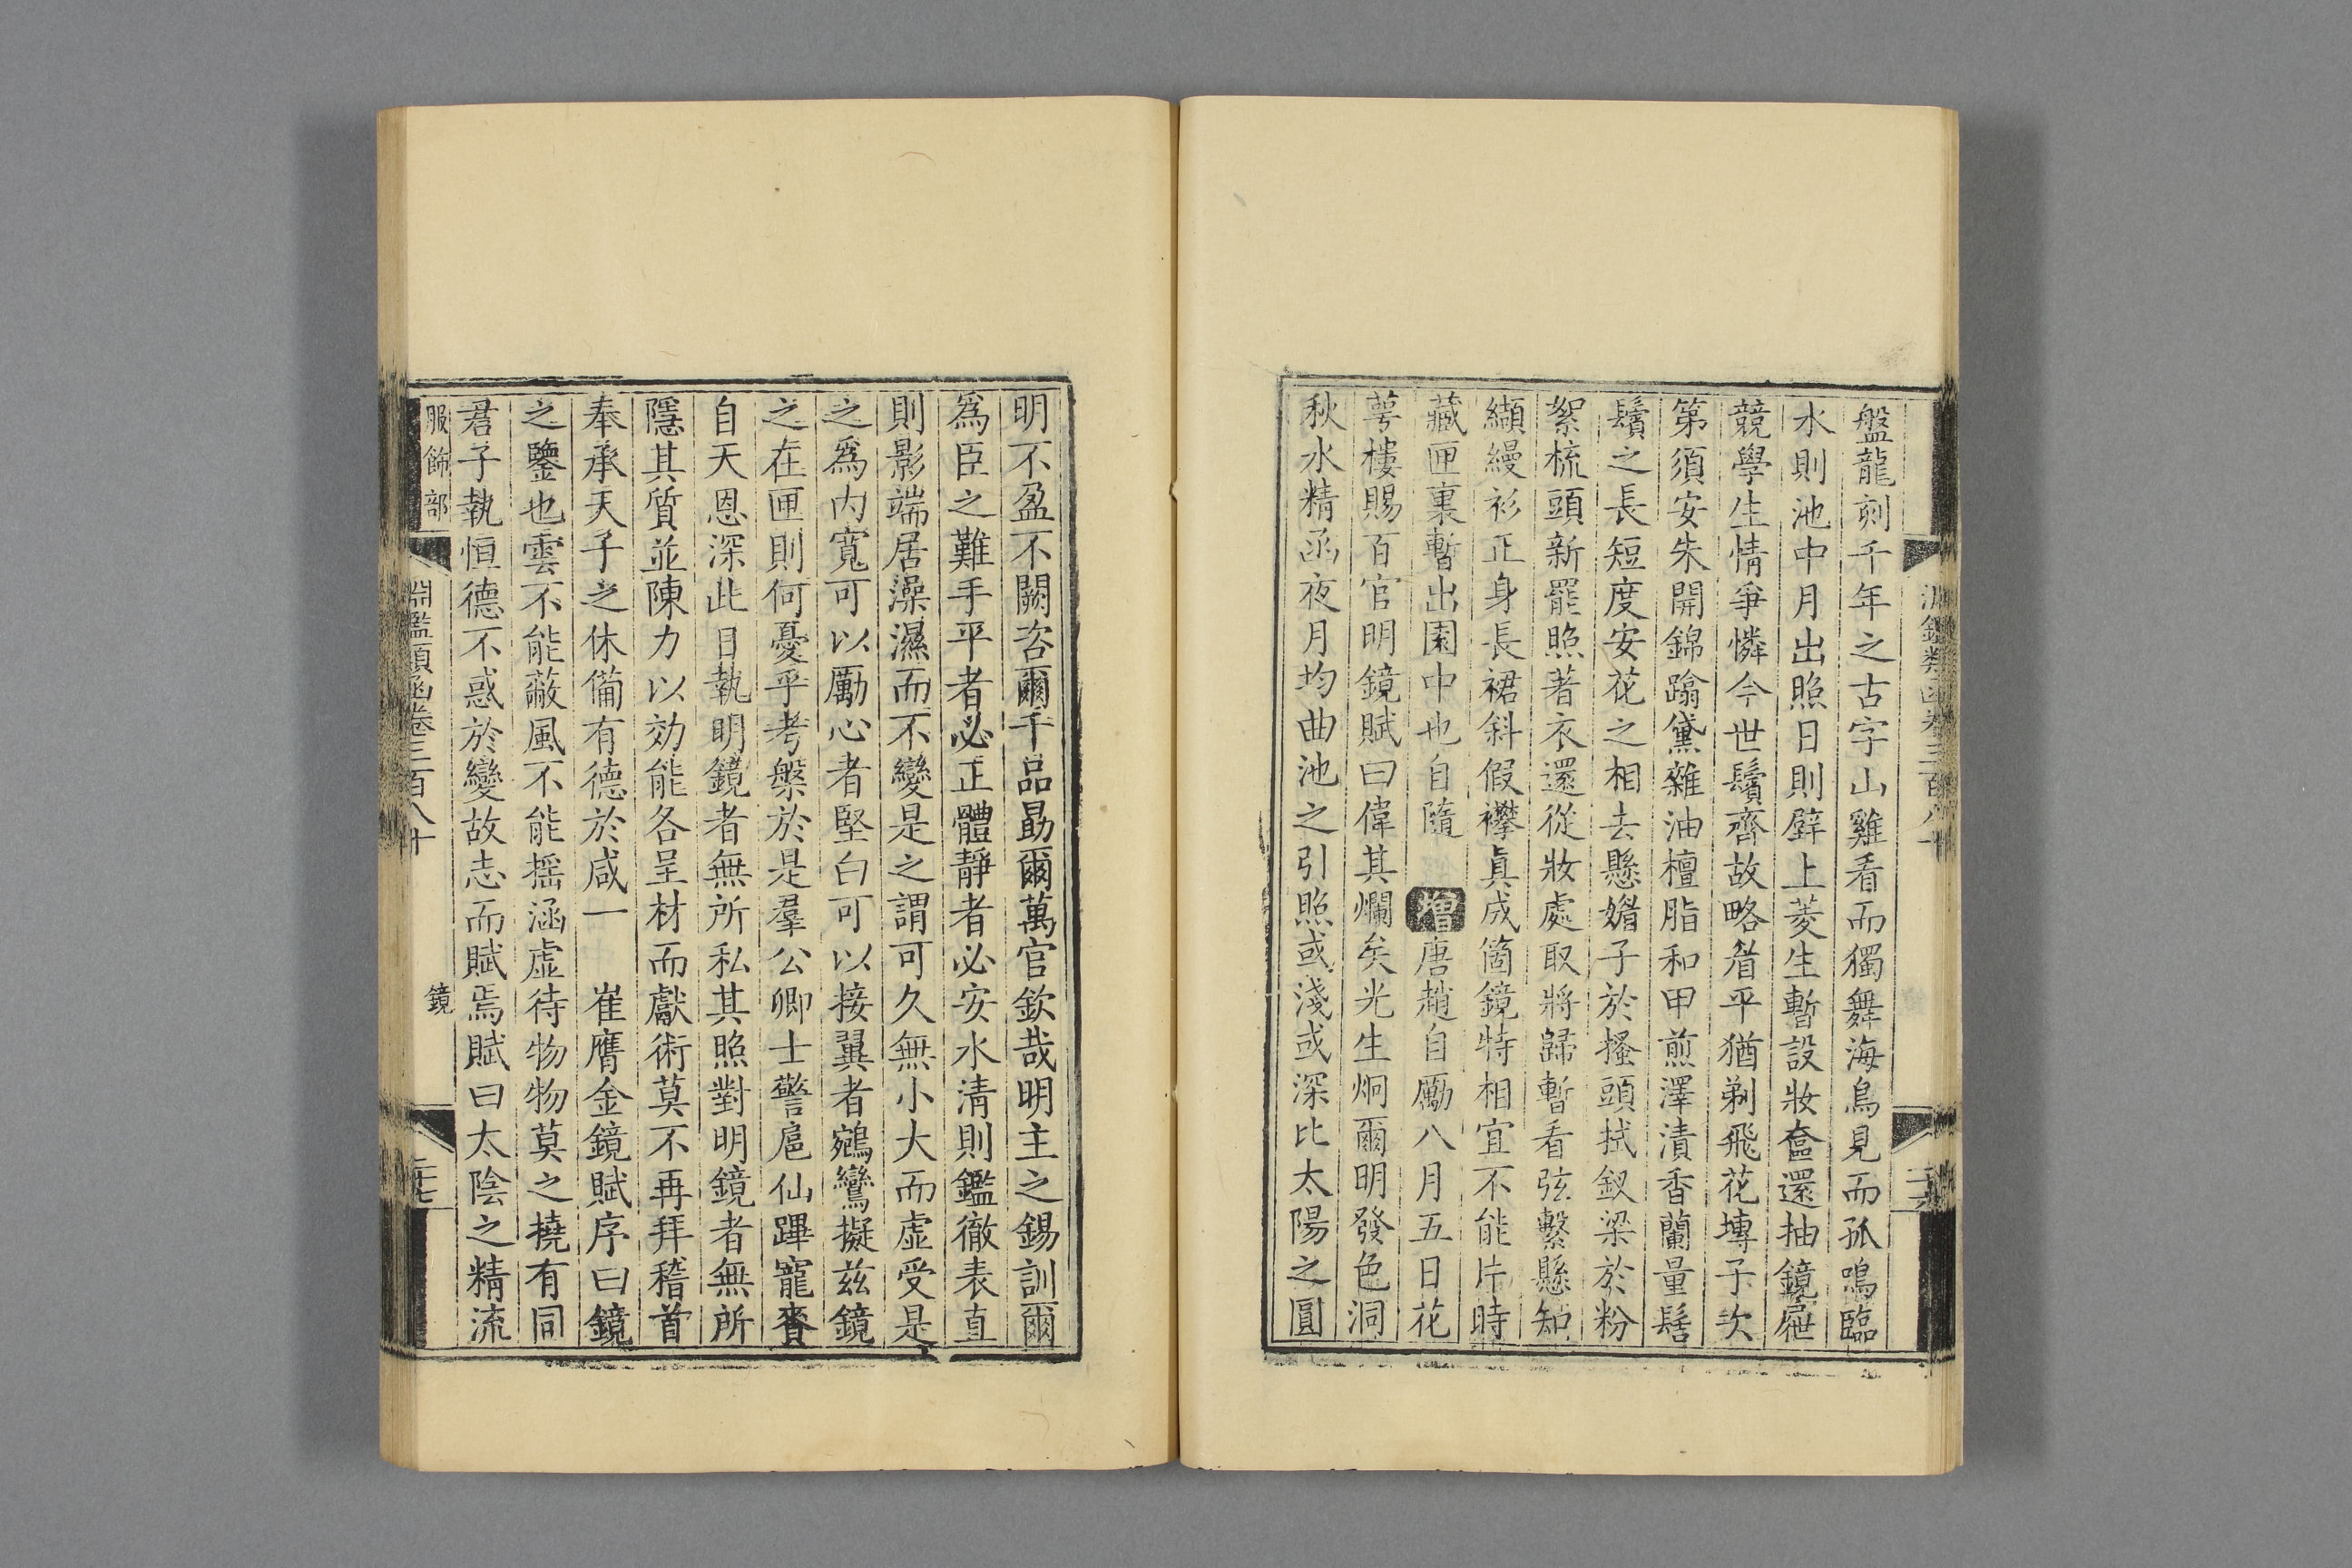 盤龍刻千年之古字山雞看而獨舞海鳥見而孤鳴臨
水則池中月出照日則壁上菱生暫設妝奩還抽鏡屜
競學生情爭憐今世鬢齊故略眉平猶剃飛花塼子次
第須安朱開錦蹹黛雜油檀脂和甲煎澤漬香蘭量髻
鬢之長短度安花之相去懸媚子於搔頭拭釵梁於粉
絮梳頭新罷照著衣還從妝處取將歸暫看弦繫懸知
纈縵衫正身長裙斜假襻眞成箇鏡特相宜不能片時
藏匣裏暫出園中也自隨 增唐趙自勵八月五日花
萼樓賜百官明鏡賦曰偉其爛矣光生炯爾明發色洞
秋水精函夜月均曲池之引照或淺或深比太陽之圓
明不盈不闕咨爾千品勗爾萬官欽哉明主之錫訓爾
爲臣之難手平者必正體靜者必安水清則鑑徹表直
則影端居澡濕而不變是之謂可久無小大而虛受是
之爲内寬可以勵心者堅白可以接翼者鵷鸞擬兹鏡
之在匣則何憂乎考槃於是羣公卿士警扈仙蹕寵賚
自天恩深此日執明鏡者無所私其照對明鏡者無所
隱其質並陳力以効能各呈材而獻術莫不再拜稽首
奉承天子之休備有德於咸一 崔膺金鏡賦序曰鏡
之鑒也雲不能蔽風不能摇涵虛待物物莫之撓有同
君子執恒德不惑於變故志而賦焉賦曰太陰之精流
服飾部 淵鑑類函卷三百八十 鏡 二十七